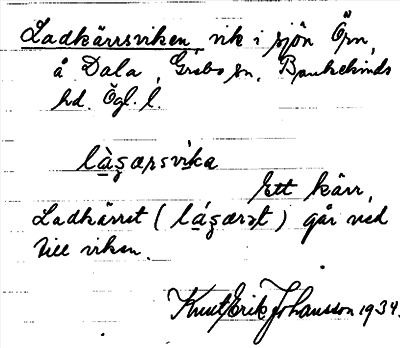 Ladkärrsviken, vik i sjön Örn,
å Dala, Grebo sn, Bankekinds
hd. Ögl. l.
làʒærsvika
Ett kärr,
Ladkärret (láʒærət) går ned
till viken.
Knut Erik Johansson 1934.